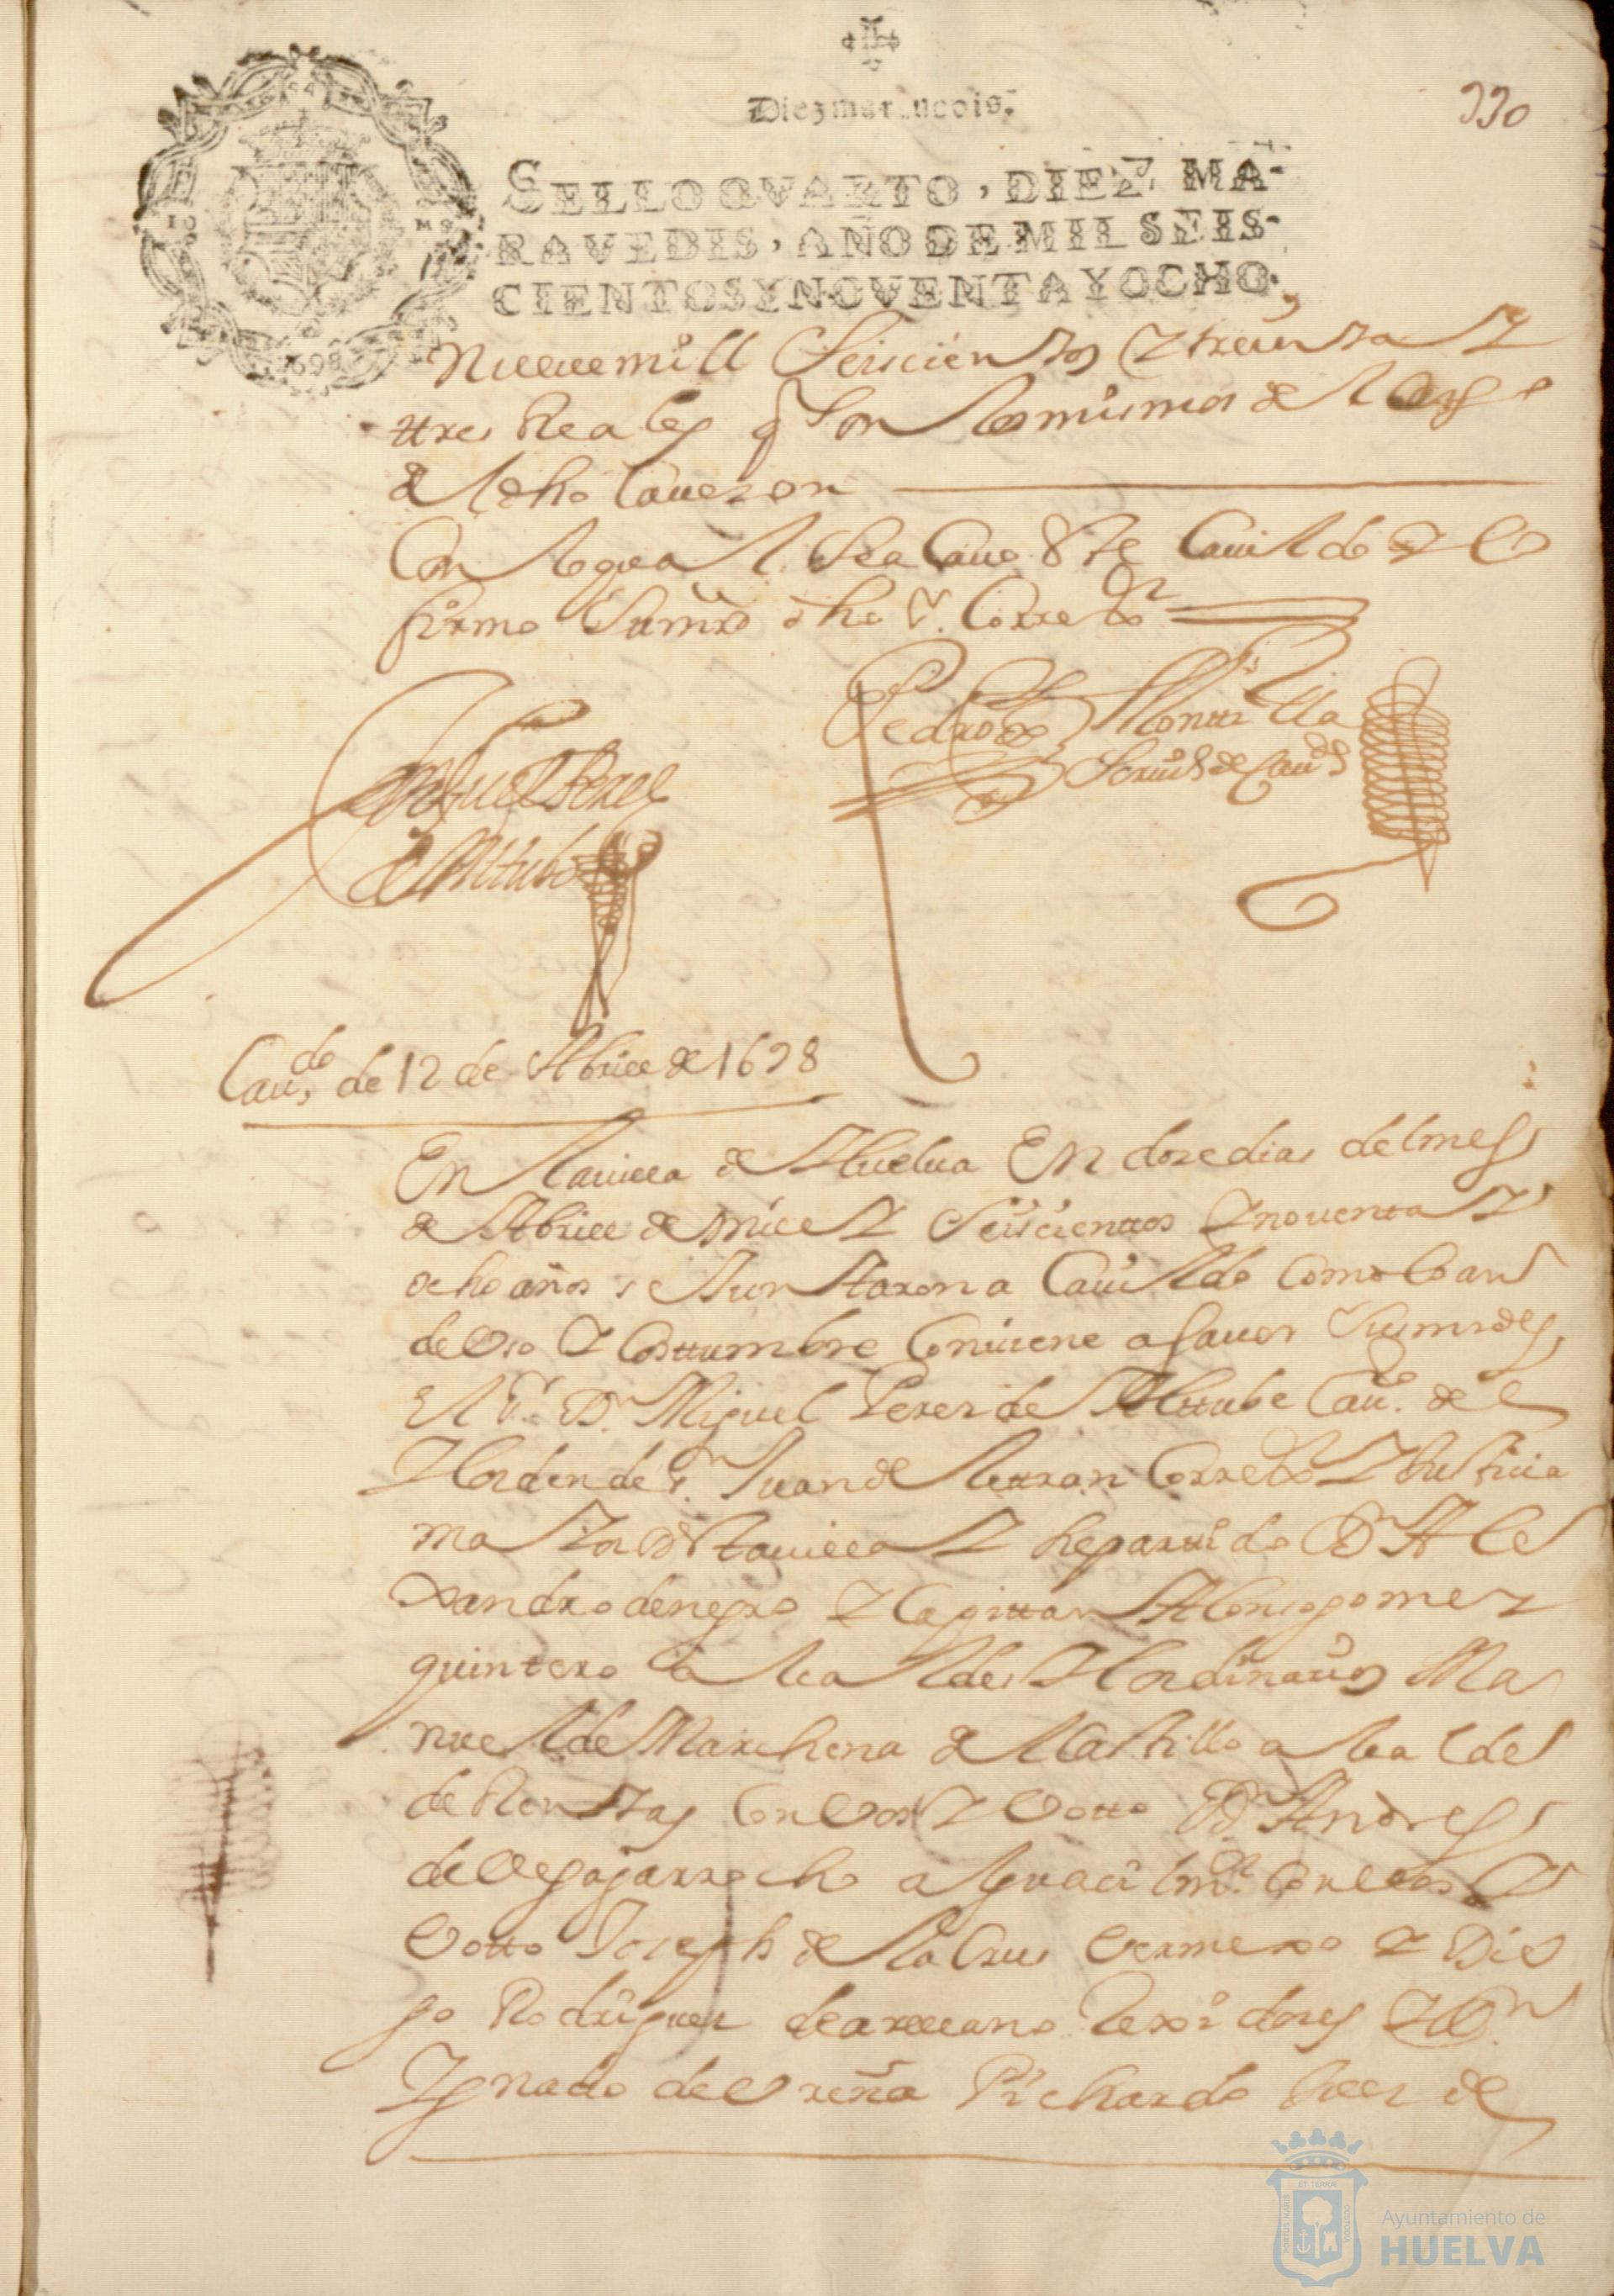 Diez marauedis.
330
SELLO QVARTO, DIEZ MA-
RAVEDIS, AÑO DE MIL SEIS-
CIENTOS Y NOVENTA Y OCHO.
10 MS
1698
Nueuemill Seiscientos Y treinta Y
ttres Reales q son los mismos de el
de el dho Cauezon
Con lo qual se acauo este Cauildo Y lo
firmo Su md dho Sr. Corredor
Miguel Perez
de Alttube
Pedro de Monttilla
Scriu de Caudo
Caudo, de 12 de Abrill de 1698
En la uilla de Huelua En doze dias del mes
de Abrill de mill Y Seiscienttos Y nouenta Y
ocho años se Junttaron a Cauildo Como lo an
de Vso Y Costtumbre Conuiene a sauer Sus mrdes
El Sr. Dn. Miguel Perez de Alttube Cauo. de el
Horden de Sn. Juan de Lettran Corredor Y Justicia
maior desta uilla Y su parttido Dn Ale
xandro de negro Y Capittan Alonso gomez
quintero Alcaldes Hordinarios Ma
nuel de Marchena de el Castillo alcalde
de Rentas Con Vos Y Votto Dn Andres
de Vega garrocho alguacil mor. Con Vos Y
Votto Joseph de la Crus Vermexo Y Die
go Rodriguez de arellano Rexidores Y Dn.
Ygnacio de Vreña Pichardo Juez de
Ayuntamiento de
HUELVA